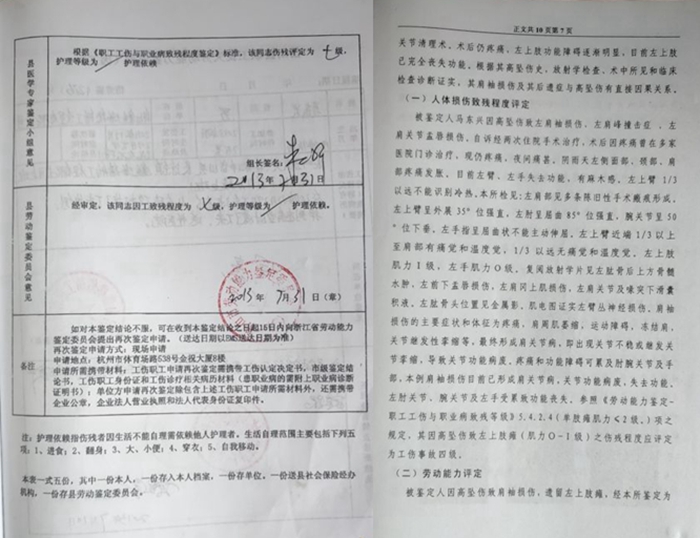 县医学专家鉴定小组意见
根据《职工工伤与职业病致残程度鉴定》标准，该同志伤残评定为 七 级，
护理等级为 / 护理依赖
组长签名：
2013年7月31日
县劳动鉴定委员会意见
经审定，该同志因工致残程度为 七 级，护理等级为 / 护理依赖。
2013年 7月31日（章）
备注
如对本鉴定结论不服，可在收到本鉴定结论之日起15日内向浙江省劳动能力
鉴定委员会提出再次鉴定申请。（送达日期以EMS送达日期为准）
再次鉴定申请方式：现场申请
申请地点：杭州市体育场路538号金祝大厦8楼
申请所需携材料：工伤职工申请再次鉴定需携带工伤认定决定书，市级鉴定结
论书，工伤职工身份证和工伤诊疗相关病历材料（患职业病的需附上职业病诊断
证明书）；单位方申请再次鉴定除包含上述工伤职工申请所需材料外，还需携带
企业公章，企业法人营业执照和法人代表身份证复印件。
注：护理依赖指伤残者因生活不能自理需依赖他人护理者。生活自理范围主要包括下列五
项：1、进食；2、翻身；3、大、小便；4、穿衣；5、自我移动。
本表一式五份，其中一份本人，一份存入本人档案，一份存单位，一份送县社会保险经办
机构，一份存县劳动鉴定委员会。
正文共10页第7页
关节清理术。术后仍疼痛、左上肢功能障碍逐渐明显，目前左上肢
已完全丧失功能。根据其高坠伤史，放射学检查、术中所见和临床
检查诊断证实，其肩袖损伤及其后遗症与高坠伤有直接因果关系。
（一）人体损伤致残程度评定
被鉴定人马东兴因高坠伤致左肩袖损伤，左肩峰撞击症，左
肩关节盂唇损伤，自诉经两次住院手术治疗，术后因疼痛曾在多家
医院门诊治疗，现仍疼痛，夜间痛甚，阴雨天左侧面部、颈部、肩
部疼痛发胀、目前左臂、左手失去功能，有麻木感，左上臂 1/3
以远不能识别冷热。本所检见：左肩部见多条陈旧性手术瘢痕形成，
左上臂呈外展 35°位强直，左肘呈屈曲 85°位强直，腕关节呈 50
°位下垂，左手指呈屈曲状不能主动伸屈。左上臂近端 1/3 以上
至肩部有痛觉和温度觉，1/3 以远无痛觉和温度觉。左上肢
肌力Ⅰ级，左手肌力O级。复阅放射学片见左肱骨后上方骨髓
水肿，左肩下盂唇损伤，左肩冈上肌损伤，左肩关节及喙突下滑囊
积液。左肱骨头位置见金属影。肌电图证实左臂丛神经损伤。肩袖
损伤的主要症状和体征为疼痛，肩周肌萎缩，运动障碍，冻结肩，
关节继发性挛缩等，最终形成肩关节病，即出现关节不稳或继发关
节挛缩，导致关节功能病废，疼痛和功能障碍可累及肘腕关节及手
部，本例肩袖损伤目前已形成肩关节病，关节功能病废，失去功能，
左肘关节、腕关节及左手受累致功能丧失。参照《劳动能力鉴定-
职工工伤与职业病致残等级》5.4.2.4（单肢瘫肌力≤2级。）项之
规定，其因高坠伤致左上肢瘫（肌力O-Ⅰ级）之伤残程度应评定
为工伤事故四级。
（二）劳动能力评定
被鉴定人因高坠伤致肩袖损伤，遗留左上肢瘫，经本所鉴定为